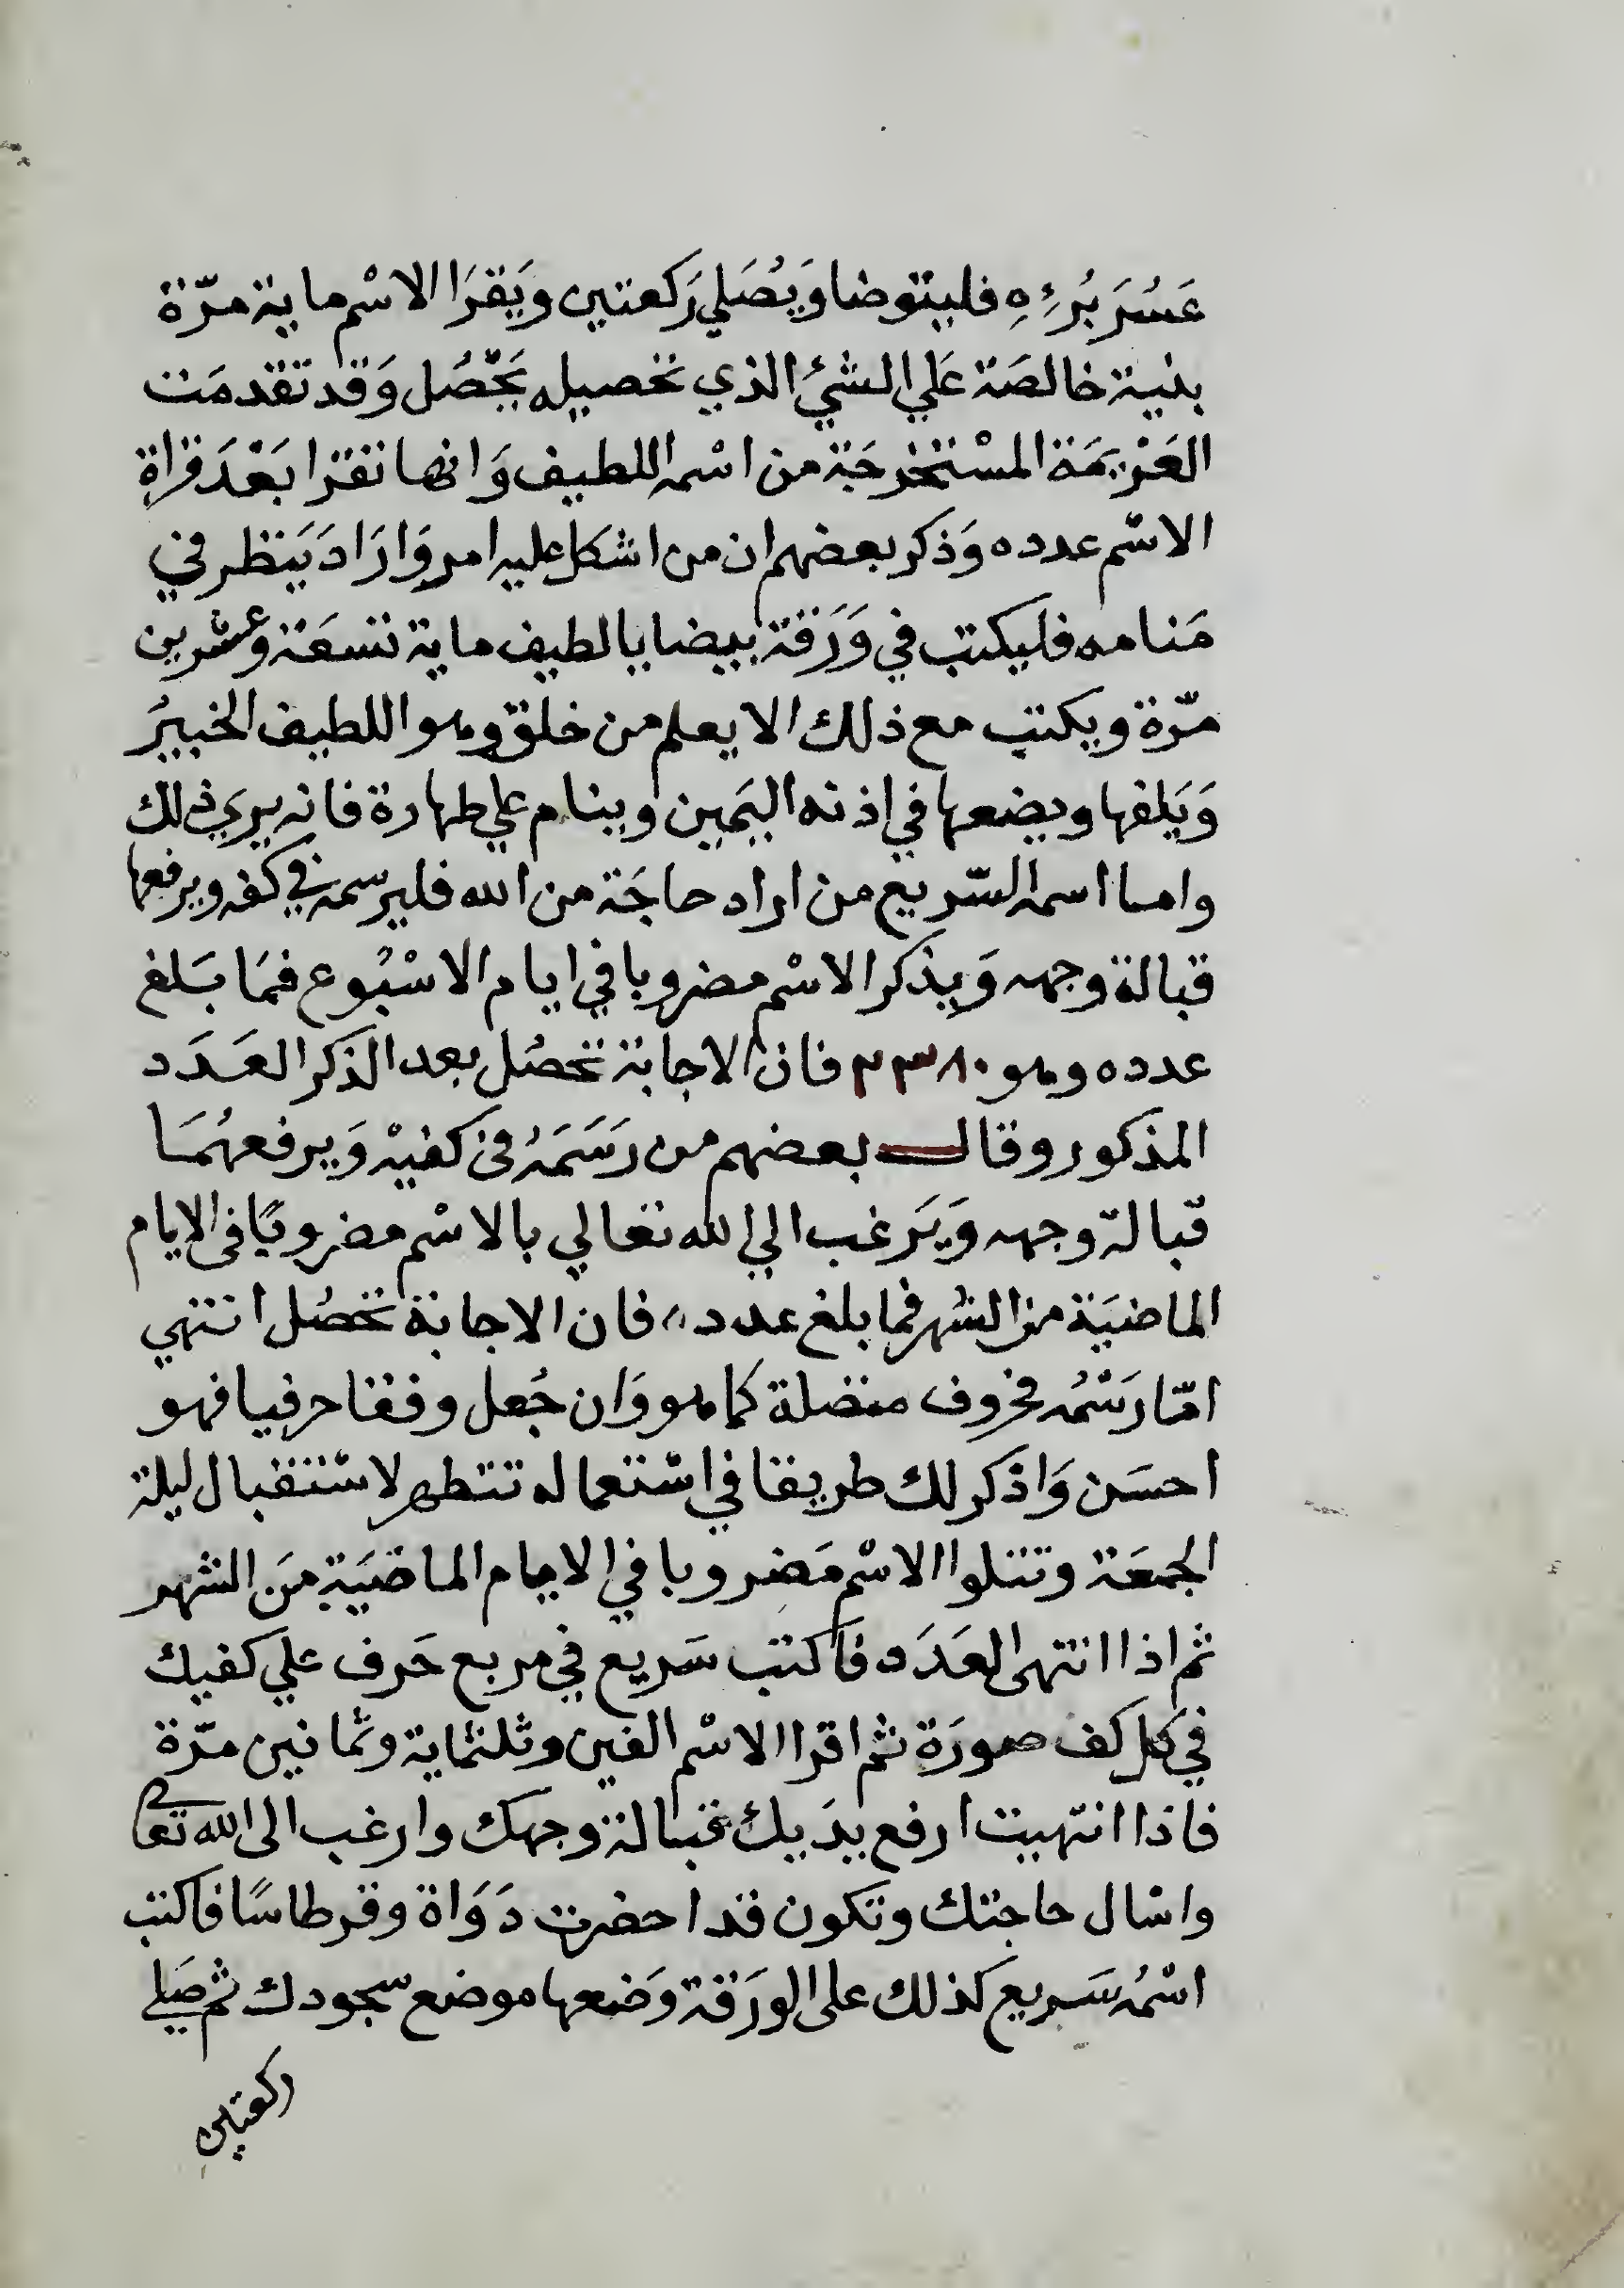 عَسُرَ بُرءِهِ فليتوضا وَيُصَلي رَكعتين ويَقرَا الاسْم ماية مرّة
بنية خالصَة عَلي الشيْ الذي تحصيله يحْصُل وَقد تقدمَت
العَزيمَة المسْتخرجَة من اسْمه اللطيف وَانها تقرا بَعْدَ قراة
الاسْم عدده وَذكر بعضهم ان من اشكل عليه امر وَارَادَ يَنظر في
مَنامه فليكتب في وَرَقة بيضا يا لطيف ماية تسعَة وعشرين
مرّة ويكتب مع ذلك الا يعلم من خلق وهو اللطيف الخبيرُ
وَيَلفها ويضعها في اذنه اليَمين وينام علي طهارة فانه يري ذلك
واما اسمه السّريع من اراد حاجَة من الله فليرسمه في كفه ويرفعها
قبالة وجهه وَيذكر الاسْم مضروبا في ايام الاسْبُوع فمَا بَلغ
عدده وهو ٢٣٨٠ فان الاجابة تحصُل بعد الذكر العَدَد
المذكور وقال بعضهم من رَسَمَهُ في كفيْه وَيرفعهُمَا
قبالة وجهه وَيَرغب الي الله تعالي بالاسْم مضروبًا في الايام
الماضيَة من الشهر فما بلغ عدده فان الاجابة تحصُل انتهي
امّا رَسْمُه فحروف منفصلة كما هو وَان جُعل وفقا حرفيا فهو
احسَن وَاذكر لك طريقا في اسْتعماله تتطهر لاسْتقبال ليلة
الجمعَة وتتلوا الاسْم مَضروبا في الايام الماضيَةِ مَن الشهر
ثم اذا انتهى العَدَد فاكتب سَريع في مربع حَرف علي كفيك
في كل كف صورَة ثم اقرا الاسْم الفين وثلثماية وثمانين مرّة
فاذا انتهيت ارفع يدَيك قبالة وجهك وارغب الى الله تعالى
واسْال حاجتك وتكون قد احضرت دَوَاة وقرطاسًا فاكتب
اسْمُه سَريع كذلك على الورَقة وَضعها موضع سجودك ثم صَلي
ركعتين